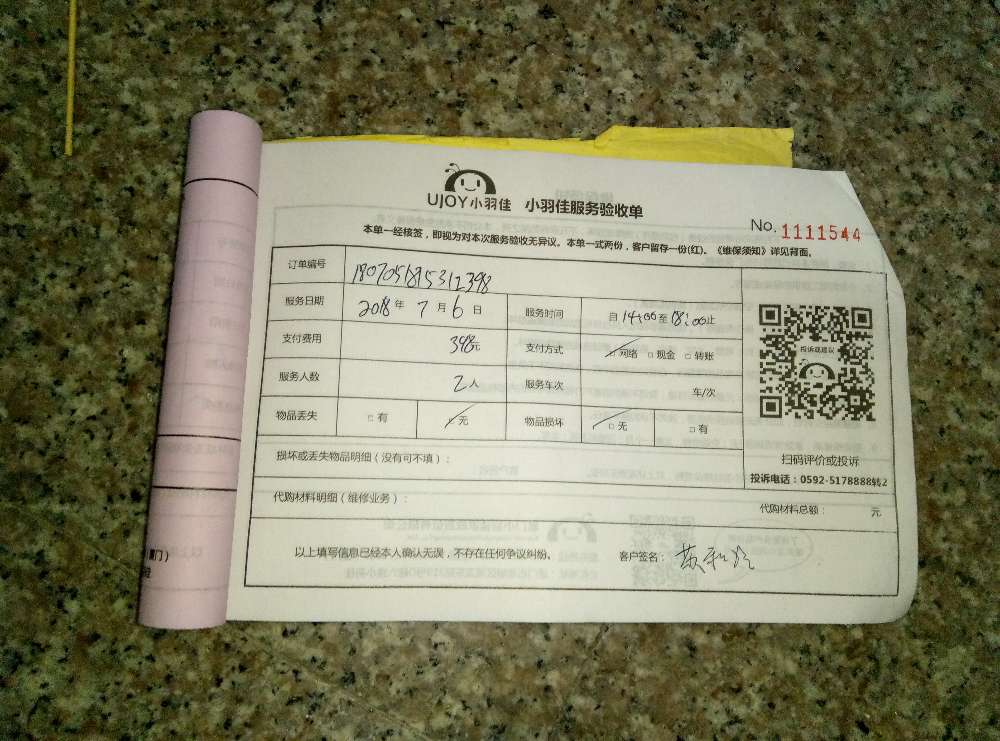 UJOY小羽佳 小羽佳服务验收单
No. 1111544
本单一经核签，即视为对本次服务验收无异议。本单一式两份，客户留存一份(红)。《维保须知》详见背面。
订单编号
服务日期 2018年 7月 6日 服务时间 自 14:00 至 18:00 止
支付费用 398元 支付方式 □ 网络 □ 现金 □ 转账
投诉或建议
服务人数 2人 服务车次 车/次
物品丢失 □ 有 □ 无 物品损坏 □ 无 □ 有
损坏或丢失物品明细（没有可不填）：
扫码评价或投诉
投诉电话：0592-5178888转2
代购材料明细（维修业务）： 代购材料总额： 元
以上填写信息已经本人确认无误，不存在任何争议纠纷。 客户签名：